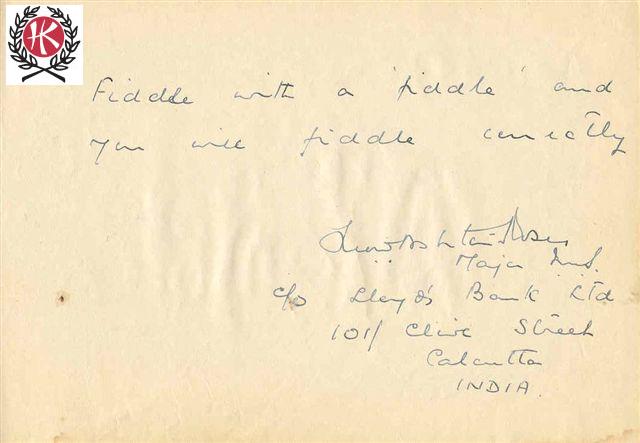 HK
Fiddle with a 'fiddle' and
you will fiddle correctly
Major
c/o Lloyd's Bank Ltd
101/ Clive Street
Calcutta
INDIA.